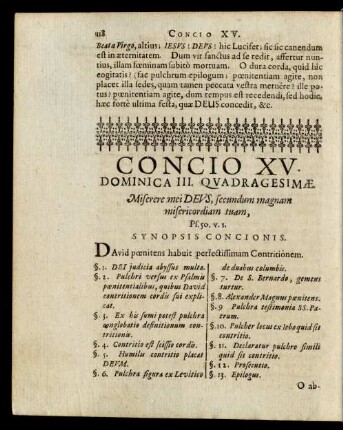 118 CONCIO XV.
Beata Virgo, altius: IESUS: DEUS: hic Lucifer: sic sic canendum
est in æternitatem. Dum vir sanctus ad se redit, affertur nun-
tius, illam fœminam subitò mortuam. O dura corda, quid hîc
cogitatis? (fac pulchrum epilogum: pœnitentiam agite, non
placet illa sedes, quam tamen peccata vestra meruêre? ille po-
tus? pœnitentiam agite, dum tempus est recedendi, sed hodie,
hæc fortè ultima festa, quæ DEUS concedit, &c.
CONCIO XV.
DOMINICA III. QVADRAGESIMÆ.
Miserere mei DEVS, secundum magnam
misericordiam tuam,
Ps. 50. v. 1.
SYNOPSIS CONCIONIS.
David pœnitens habuit perfectissimam Contritionem.
§. 1. DEI judicia abyssus multa.
§. 2. Pulchri versus ex Psalmis
pœnitentialibus, quibus David
contritionem cordis sui expli-
cat.
§. 3. Ex his sumi potest pulchra
conglobatio definitionum con-
tritionis.
§. 4. Contritio est scissio cordis.
§. 5. Humilis contritio placat
DEVM.
§. 6. Pulchra figura ex Levitico
de duabus columbis.
§. 7. De S. Bernardo, gemens
turtur.
§. 8. Alexander Magnus pœnitens.
§. 9 Pulchra testimonia SS. Pa-
trum.
§. 10. Pulcher locus ex Iob quid sit
contritio.
§. 11. Declaratur pulchro simili
quid sit contritio.
§. 12. Prosecutio.
§. 13. Epilogus.
O ab-